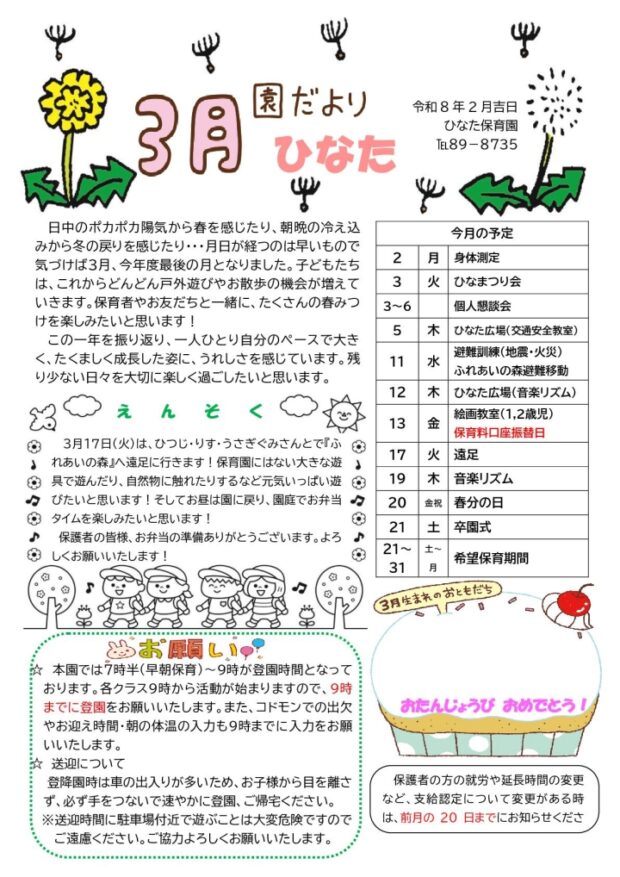 3月 園だより
ひなた
令和8年2月吉日
ひなた保育園
℡89-8735
日中のポカポカ陽気から春を感じたり、朝晩の冷え込
みから冬の戻りを感じたり・・・月日が経つのは早いもので
気づけば3月、今年度最後の月となりました。子どもたち
は、これからどんどん戸外遊びやお散歩の機会が増えて
いきます。保育者やお友だちと一緒に、たくさんの春みつ
けを楽しみたいと思います！
この一年を振り返り、一人ひとり自分のペースで大き
く、たくましく成長した姿に、うれしさを感じています。残
り少ない日々を大切に楽しく過ごしたいと思います。
えんそく
3月17日(火)は、ひつじ・りす・うさぎぐみさんとで『ふ
れあいの森』へ遠足に行きます！保育園にはない大きな遊
具で遊んだり、自然物に触れたりするなど元気いっぱい遊
びたいと思います！そしてお昼は園に戻り、園庭でお弁当
タイムを楽しみたいと思います！
保護者の皆様、お弁当の準備ありがとうございます。よろ
しくお願いいたします！
今月の予定
2 月 身体測定
3 火 ひなまつり会
3～6 個人懇談会
5 木 ひなた広場(交通安全教室)
11 水 避難訓練(地震・火災)
ふれあいの森避難移動
12 木 ひなた広場(音楽リズム)
13 金 絵画教室(1,2歳児)
保育料口座振替日
17 火 遠足
19 木 音楽リズム
20 金祝 春分の日
21 土 卒園式
21～31 土～月 希望保育期間
3月生まれのおともだち
おたんじょうび おめでとう！
お願い
☆ 本園では7時半(早朝保育)～9時が登園時間となって
おります。各クラス9時から活動が始まりますので、9時
までに登園をお願いいたします。また、コドモンでの出欠
やお迎え時間・朝の体温の入力も9時までに入力をお願
いいたします。
☆ 送迎について
登降園時は車の出入りが多いため、お子様から目を離さ
ず、必ず手をつないで速やかに登園、ご帰宅ください。
※送迎時間に駐車場付近で遊ぶことは大変危険ですので
ご遠慮ください。ご協力よろしくお願いいたします。
保護者の方の就労や延長時間の変更
など、支給認定について変更がある時
は、前月の 20 日までにお知らせくださ